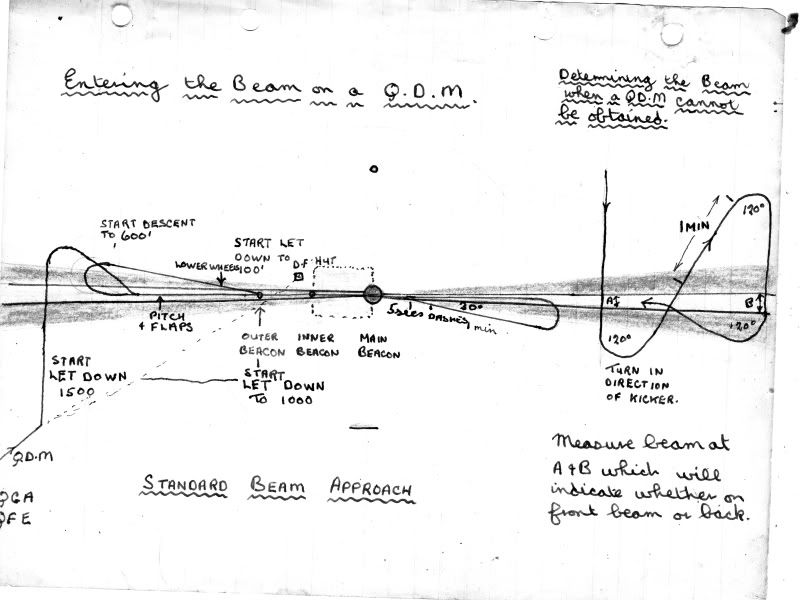 Entering the Beam on a Q.D.M.
Determining the Beam
when a QDM cannot
be obtained.
START DESCENT
TO 600'
START LET
DOWN TO
100'
LOWER WHEELS
D.F. HUT
PITCH
& FLAPS
OUTER
BEACON
INNER
BEACON
MAIN
BEACON
5 secs DASHES
min
START
LET DOWN
1500
START
LET DOWN
TO 1000
Q.D.M
QGA
QFE
1 MIN
120°
A
B
120°
120°
TURN IN
DIRECTION
OF KICKER.
Measure beam at
A & B which will
indicate whether on
front beam or back.
STANDARD BEAM APPROACH